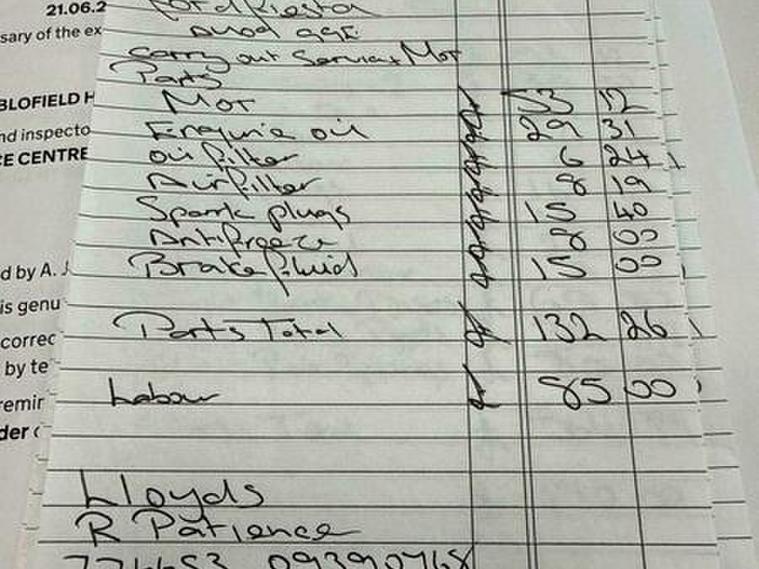 21.06.2
Ford Fiesta
sary of the ex
Carry out Service + Mot
Parts
BLOFIELD H
Mot £ 53 12
nd inspecto
Enquire oil £ 29 31
CE CENTRE
oil filter £ 6 24
Air filter £ 8 19
Spark plugs £ 15 40
Antifreeze £ 8 00
d by A. J
Brake fluid £ 15 00
is genu
correc
Parts Total £ 132 26
by te
remir
Labour £ 85 00
der
Lloyds
R Patience
774653 09390768